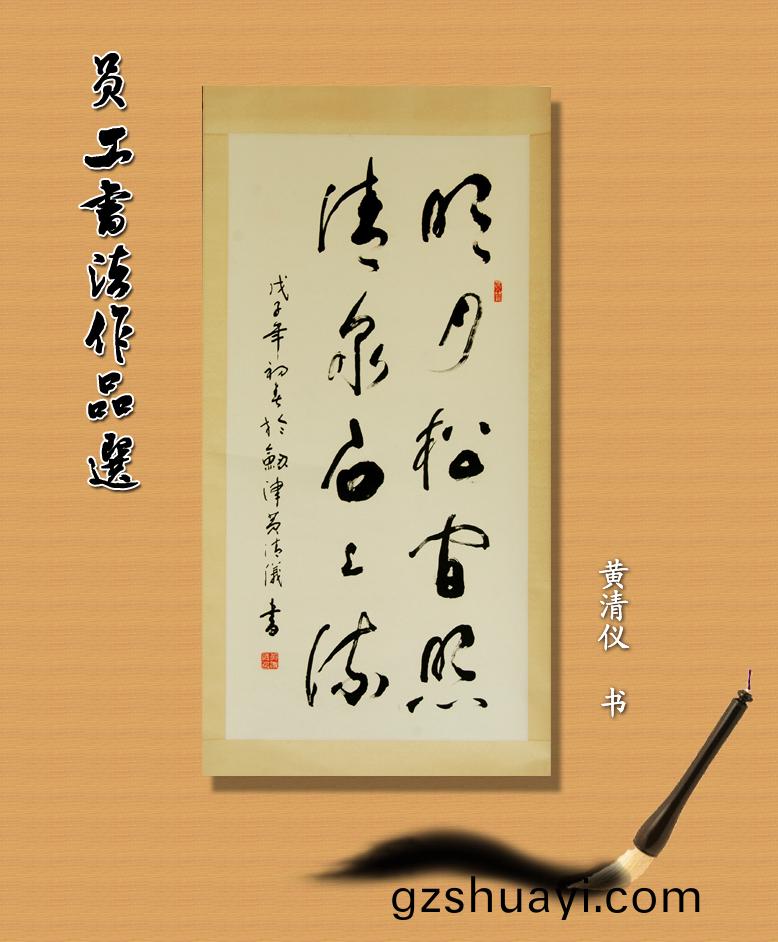 员工書法作品選
明月松間照
清泉石上流
戊子年初春於劍津黄清儀書
黄清仪 书
gzshuayi.com